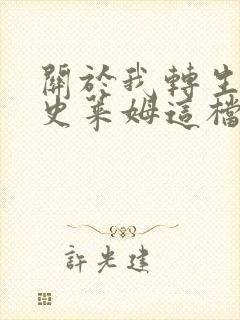 關於我轉生
史萊姆這檔
許光建